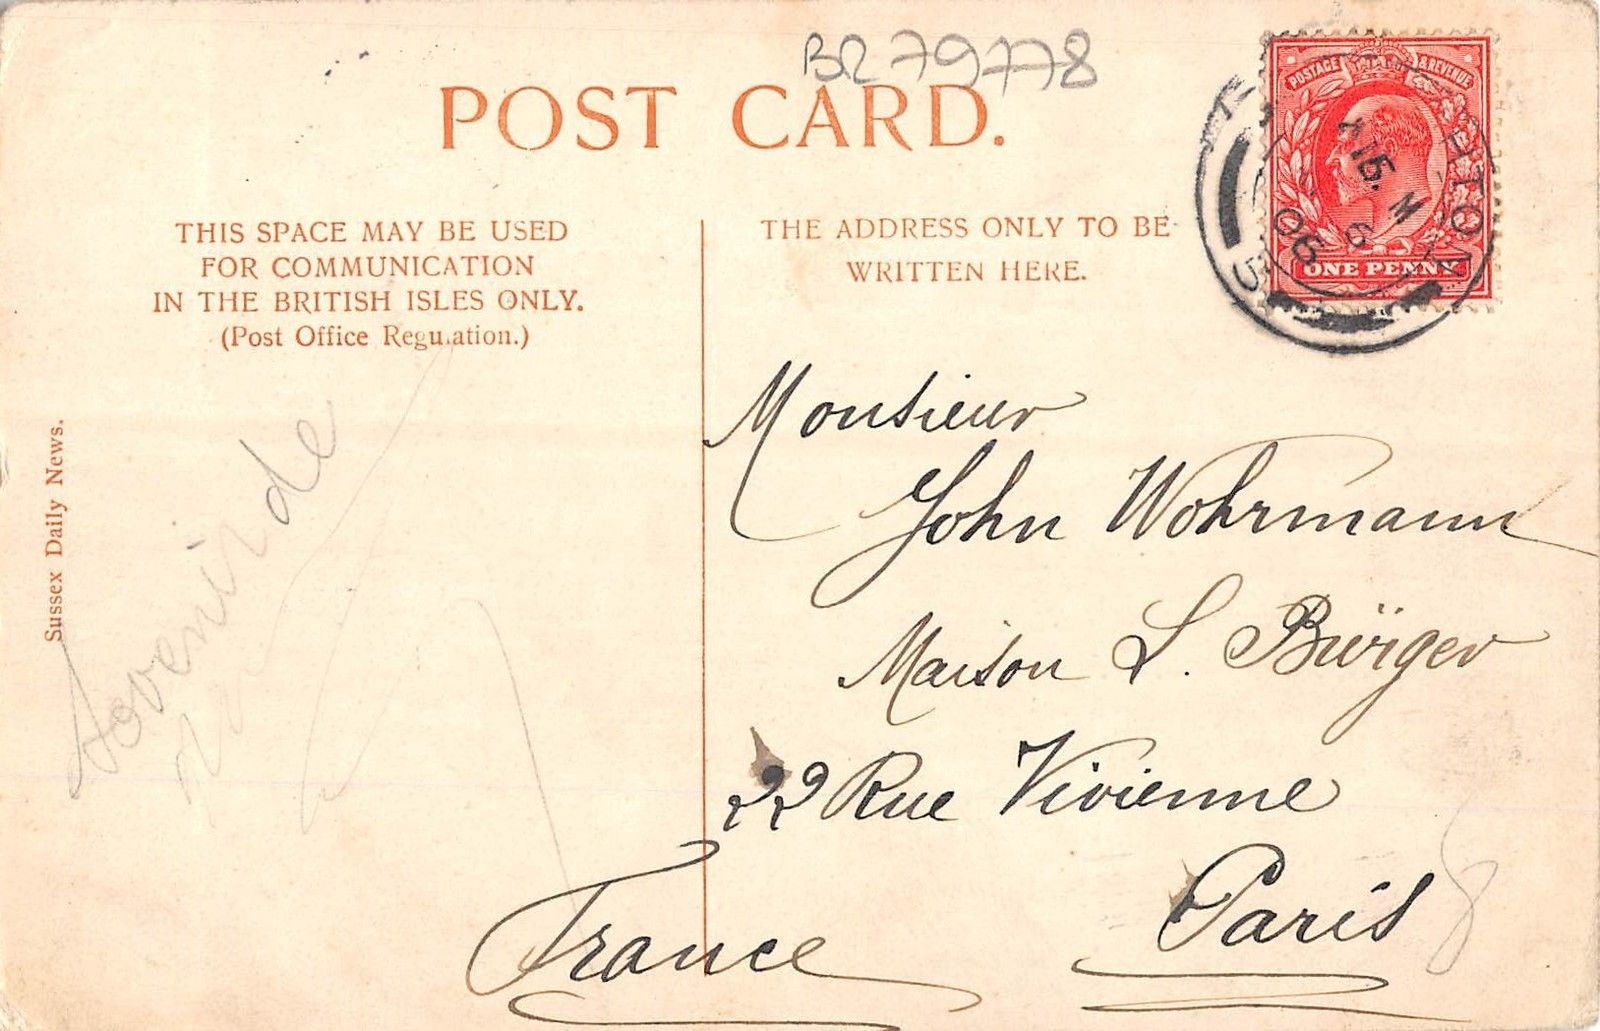 BR 79778
POST CARD.
POSTAGE & REVENUE
ONE PENNY
06
THIS SPACE MAY BE USED
FOR COMMUNICATION
IN THE BRITISH ISLES ONLY.
(Post Office Regu.ation.)
THE ADDRESS ONLY TO BE
WRITTEN HERE.
Sussex Daily News.
Sovenir de
Monsieur
John Wohrmann
Maison L. Bürger
22 Rue Vivienne
Paris
France